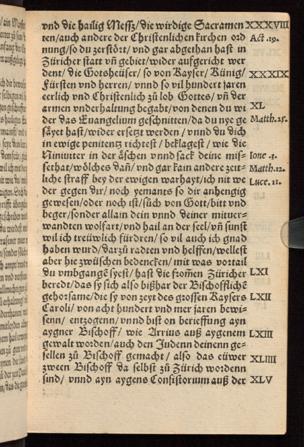 vnd die hailig Messz/die wirdige Sacramen XXXVIII
ten/auch andere der Christenlichen kirchen ord Act .19.
nung/so du zerstört/vnd gar abgethan hast in
Züricher statt vñ gebiet/wider aufgericht wer
dent/die Gotsheüser/so von Kayser/Künig/ XXXIX
Fürsten vnd herren/vnnd so vil hundert jaren
eerlich vnd Christenlich zů lob Gottes/vñ der
armen vnderhaltung begabt/von denen du wi XL
der das Euangelium geschnitten/da du nye ge Matth.25.
säyet hast/wider ersetz werden/vnnd du dich
in ewige penitentz richtest/beklagest/wie die
Niniuiter in der äschen vnnd sack deine mis- Ione .3.
sethat/wölches dañ/vnd gar kain andere zeit- Matth.12.
liche straff bey der ewigen warhayt/ich nit wi Luce.11.
der gegen dir/noch yemants so dir anhengig
gewesen/oder noch ist/sůch von Gott/bitt vnd
beger/sonder allain dein vnnd deiner mituer-
wandten wolfart/vnd hail an der seel/vñ sunst
wil ich treüwlich fürdren/so vil auch ich gnad
haben wurd/darzů radten vnd helffen/wellest
aber hie zwüschen bedencken/mit was vortail
du vmbgangē syest/hast die fromēn Züricher LXI
beredt/das sy sich also bißhar der Bischofflichē
gehorsame/die sy von zeyt des grossen Kaysers LXII
Caroli/von acht hundert vnd mer jaren bewi-
senn/entzogenn/vnnd bist on berieffung ayn
aygner Bischoff/wie Arrius auß aygenem LXIII
gewalt worden/auch den Judenn deinenn ge-
sellen zů Bischoff gemacht/also das eüwer XLIIII
zween Bischoff da selbst zů Zürich wordenn
sind/vnnd ayn aygens Consistorium auß der XLV